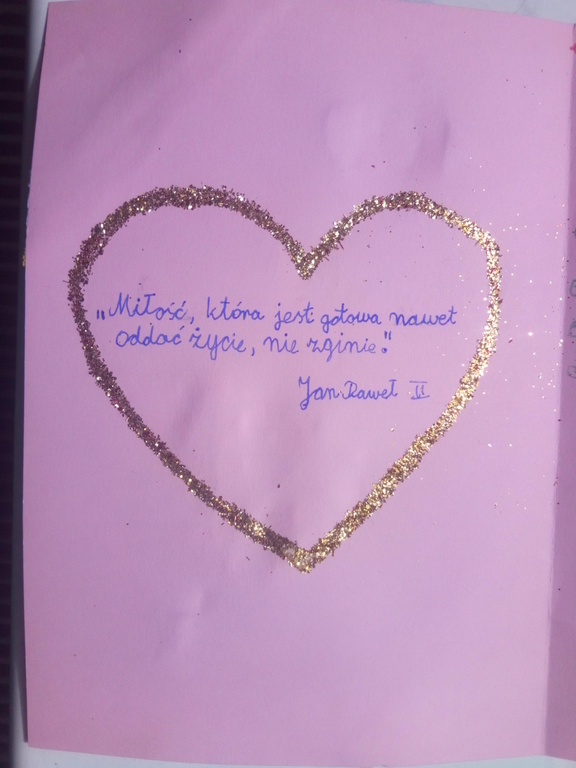 „Miłość, która jest gotowa nawet
oddać życie, nie zginie."
Jan Paweł II